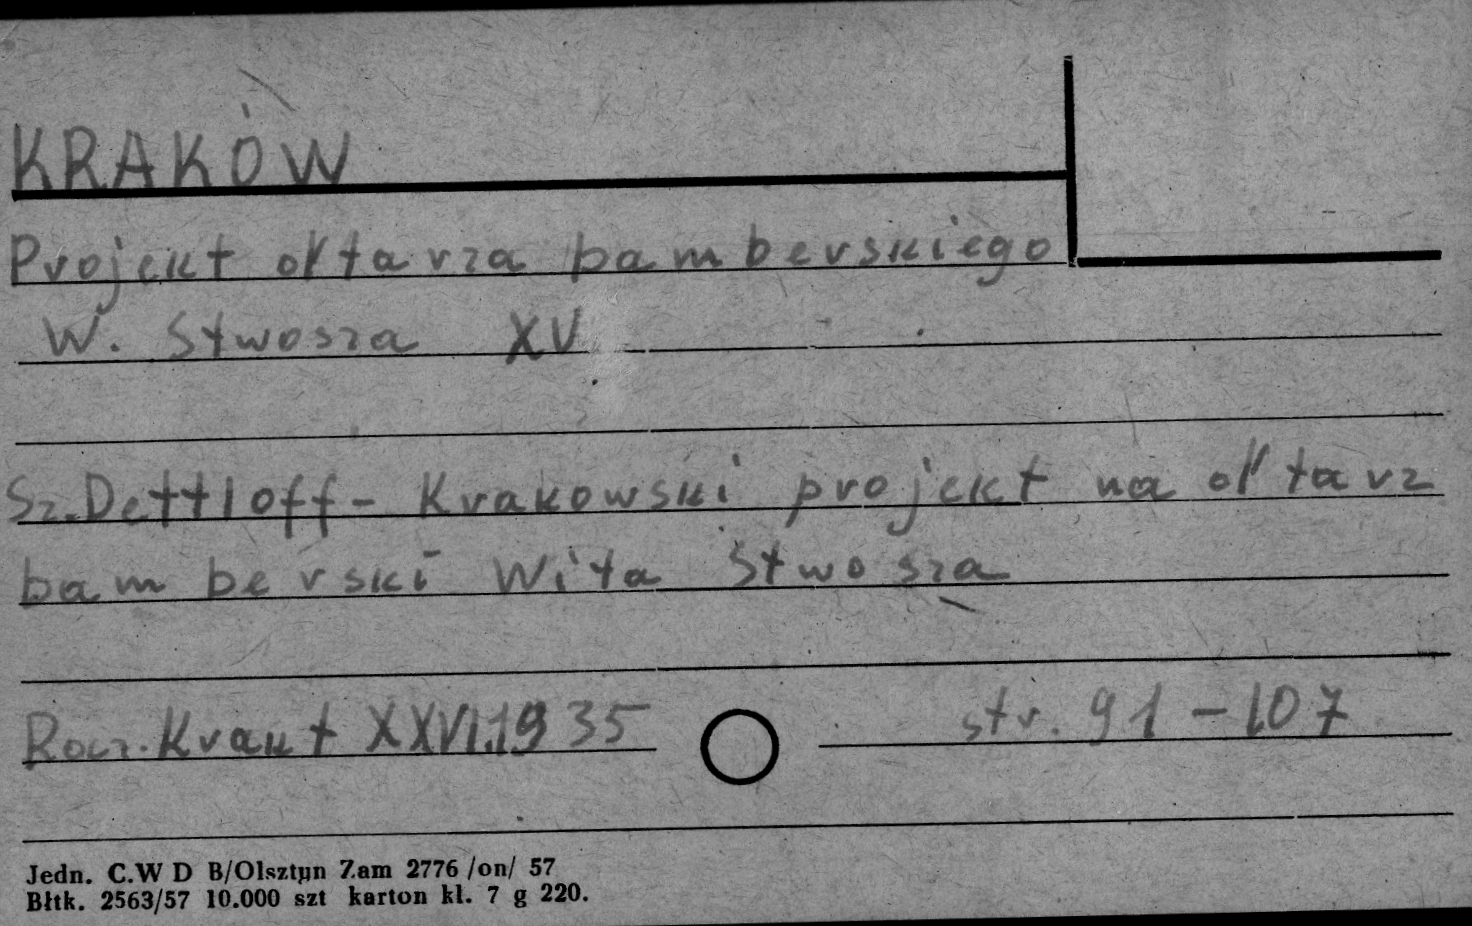 KRAKÓW
Projekt ołtarza bamberskiego
W. Stwosza XV
Sz. Dettloff - Krakowski projekt na ołtarz
bamberski Wita Stwosza
Rocz. Krak t XXVI.1935 str. 91-107
Jedn. C.W D B/Olsztyn Zam 2776 /on/ 57
Bltk. 2563/57 10.000 szt karton kl. 7 g 220.